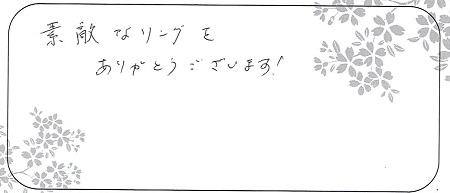 素敵なリングを
ありがとうございます!